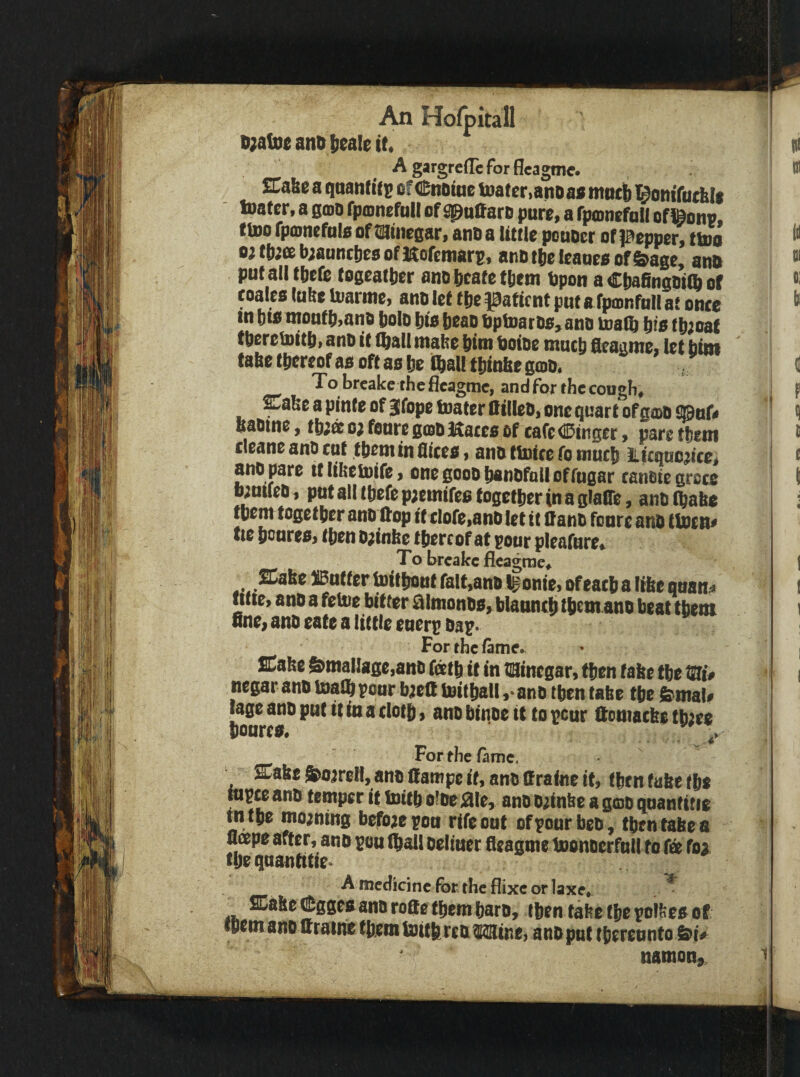 An Hoſpitall
drawe and heale it.
A gargreſſe for fleagme.
Take a quantity of Endiue water, and as much Honiſuckls
water, a good ſpoonefull of Muſtard pure, a ſpoonefull of Hony,
two ſpoonefuls of Uinegar, and a little pouder of Pepper, two
or three braunches of Roſemary, and the leaues of Sage, and
put all theſe togeather and heate them vpon a Chafingdiſh of
coales luke warme, and let the Patient put a ſpoonfull at once
in his mouth, and hold his head vpwards, and waſh his throat
therewith, and it ſhall make him voide much fleagme, let him
take thereof as oft as he ſhall thinke good.
To breake the fleagme, and for the cough.
Take a pinte of Iſope water ſtilled, one quart of good Muſ-
kadine, three or foure good Races of caſe Ginger, pare them
cleane and cut them in ſlices, and twice ſo much Licquorice,
and pare it likewiſe, one good handfull of ſugar candie groce
bruiſed, put all theſe premiſes together in a glaſſe, and ſhake
them together and ſtop it cloſe, and let it ſtand foure and twen-
tie houres, then drinke thereof at your pleaſure.
To breake fleagme.
Take Butter without ſalt, and Honie, of each a like quan-
titie, and a fewe bitter Almonds, blaunch them and beat them
fine, and eate a little euery day.
For the ſame.
Take Smallage, and ſeeth it in Uinegar, then take the Ui-
negar and waſh your breſt withall, and then take the Smal-
lage and put it in a cloth, and binde it to your ſtomacke three
houres.
For the ſame.
Take Sorrell, and ſtampe it, and ſtraine it, then take the
iuyce and temper it with olde Ale, and drinke a good quantitie
in the morning before you riſe out of your bed, then take a
ſleepe after, and you ſhall deliuer fleagme wonderfull to ſee for
the quantitie.
A medicine for the flixe or laxe.
Take Egges and roſte them hard, then take the yolkes of
them and ſtraine them with red Wine, and put thereunto Si-
namon,